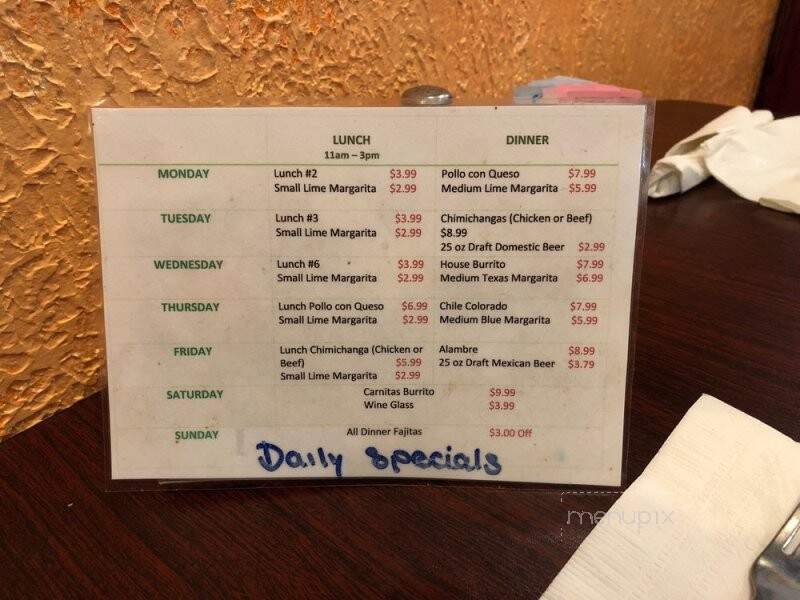 LUNCH DINNER
11am – 3pm
MONDAY Lunch #2 $3.99 Pollo con Queso $7.99
Small Lime Margarita $2.99 Medium Lime Margarita $5.99
TUESDAY Lunch #3 $3.99 Chimichangas (Chicken or Beef)
Small Lime Margarita $2.99 $8.99
25 oz Draft Domestic Beer $2.99
WEDNESDAY Lunch #6 $3.99 House Burrito $7.99
Small Lime Margarita $2.99 Medium Texas Margarita $6.99
THURSDAY Lunch Pollo con Queso $6.99 Chile Colorado $7.99
Small Lime Margarita $2.99 Medium Blue Margarita $5.99
FRIDAY Lunch Chimichanga (Chicken or Alambre $8.99
Beef) $5.99 25 oz Draft Mexican Beer $3.79
Small Lime Margarita $2.99
SATURDAY Carnitas Burrito $9.99
Wine Glass $3.99
SUNDAY All Dinner Fajitas $3.00 Off
Daily specials
menupix